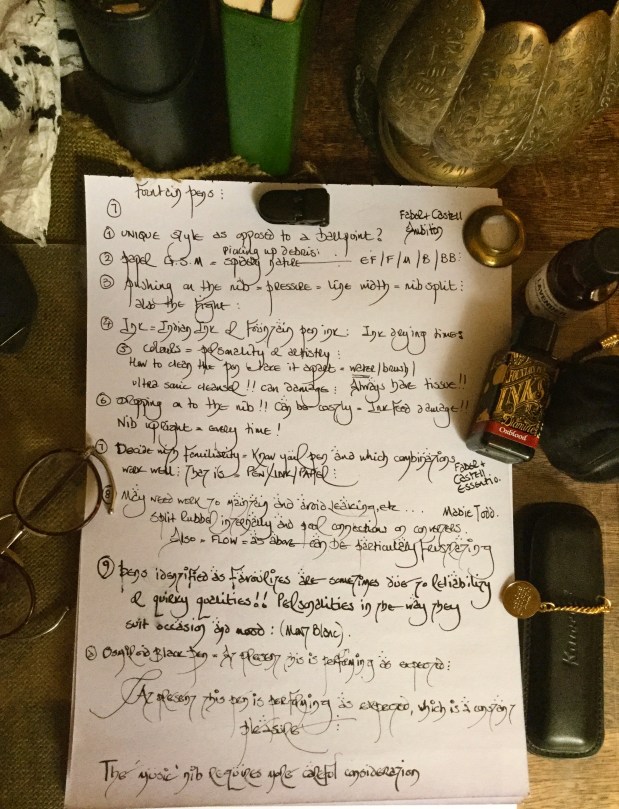 Fountain pens :
Faber + Castell
Ambition
① UNIQUE style as opposed to a Ballpoint?
picking up debris:
② paper G.S.M = EF / F / M / B / BB:
③ pushing on the nib = pressure = line width = nib split:
also the
④ Ink = Indian Ink & Fountain pen ink: Ink drying time:
⑤ colours = personality & artistry:
How to clean the pen take it apart = water / brush /
ultra sonic cleanser!! can damage: Always have tissue!!
⑥ Dropping on to the nib!! Can be costly = Ink Feed damage!!
Nib upright = every time!
⑦ Decide with Familiarity = Know your pen and which combinations
work well: That is = PEN/INK/PAPER:
Faber +
Castell
Essentio.
⑧ May need work to maintain and avoid leaking, etc....
Mabie Todd.
Split rubber internally and poor connections on converters
Also = FLOW = as above can be particularly frustrating
⑨ pens identified as Favourites are sometimes due to Reliability
& quirky qualities!! Personalities in the way they
suit occasion and mood: (Mont Blanc).
Osmiroid Black Pen = At present this is performing as expected:
At present this pen is performing as expected, which is a constant
pleasure
The 'music' nib requires more careful consideration
LAVENDER
FOUNTAIN PEN
INKS
Diamine
Oxblood
Kaweco